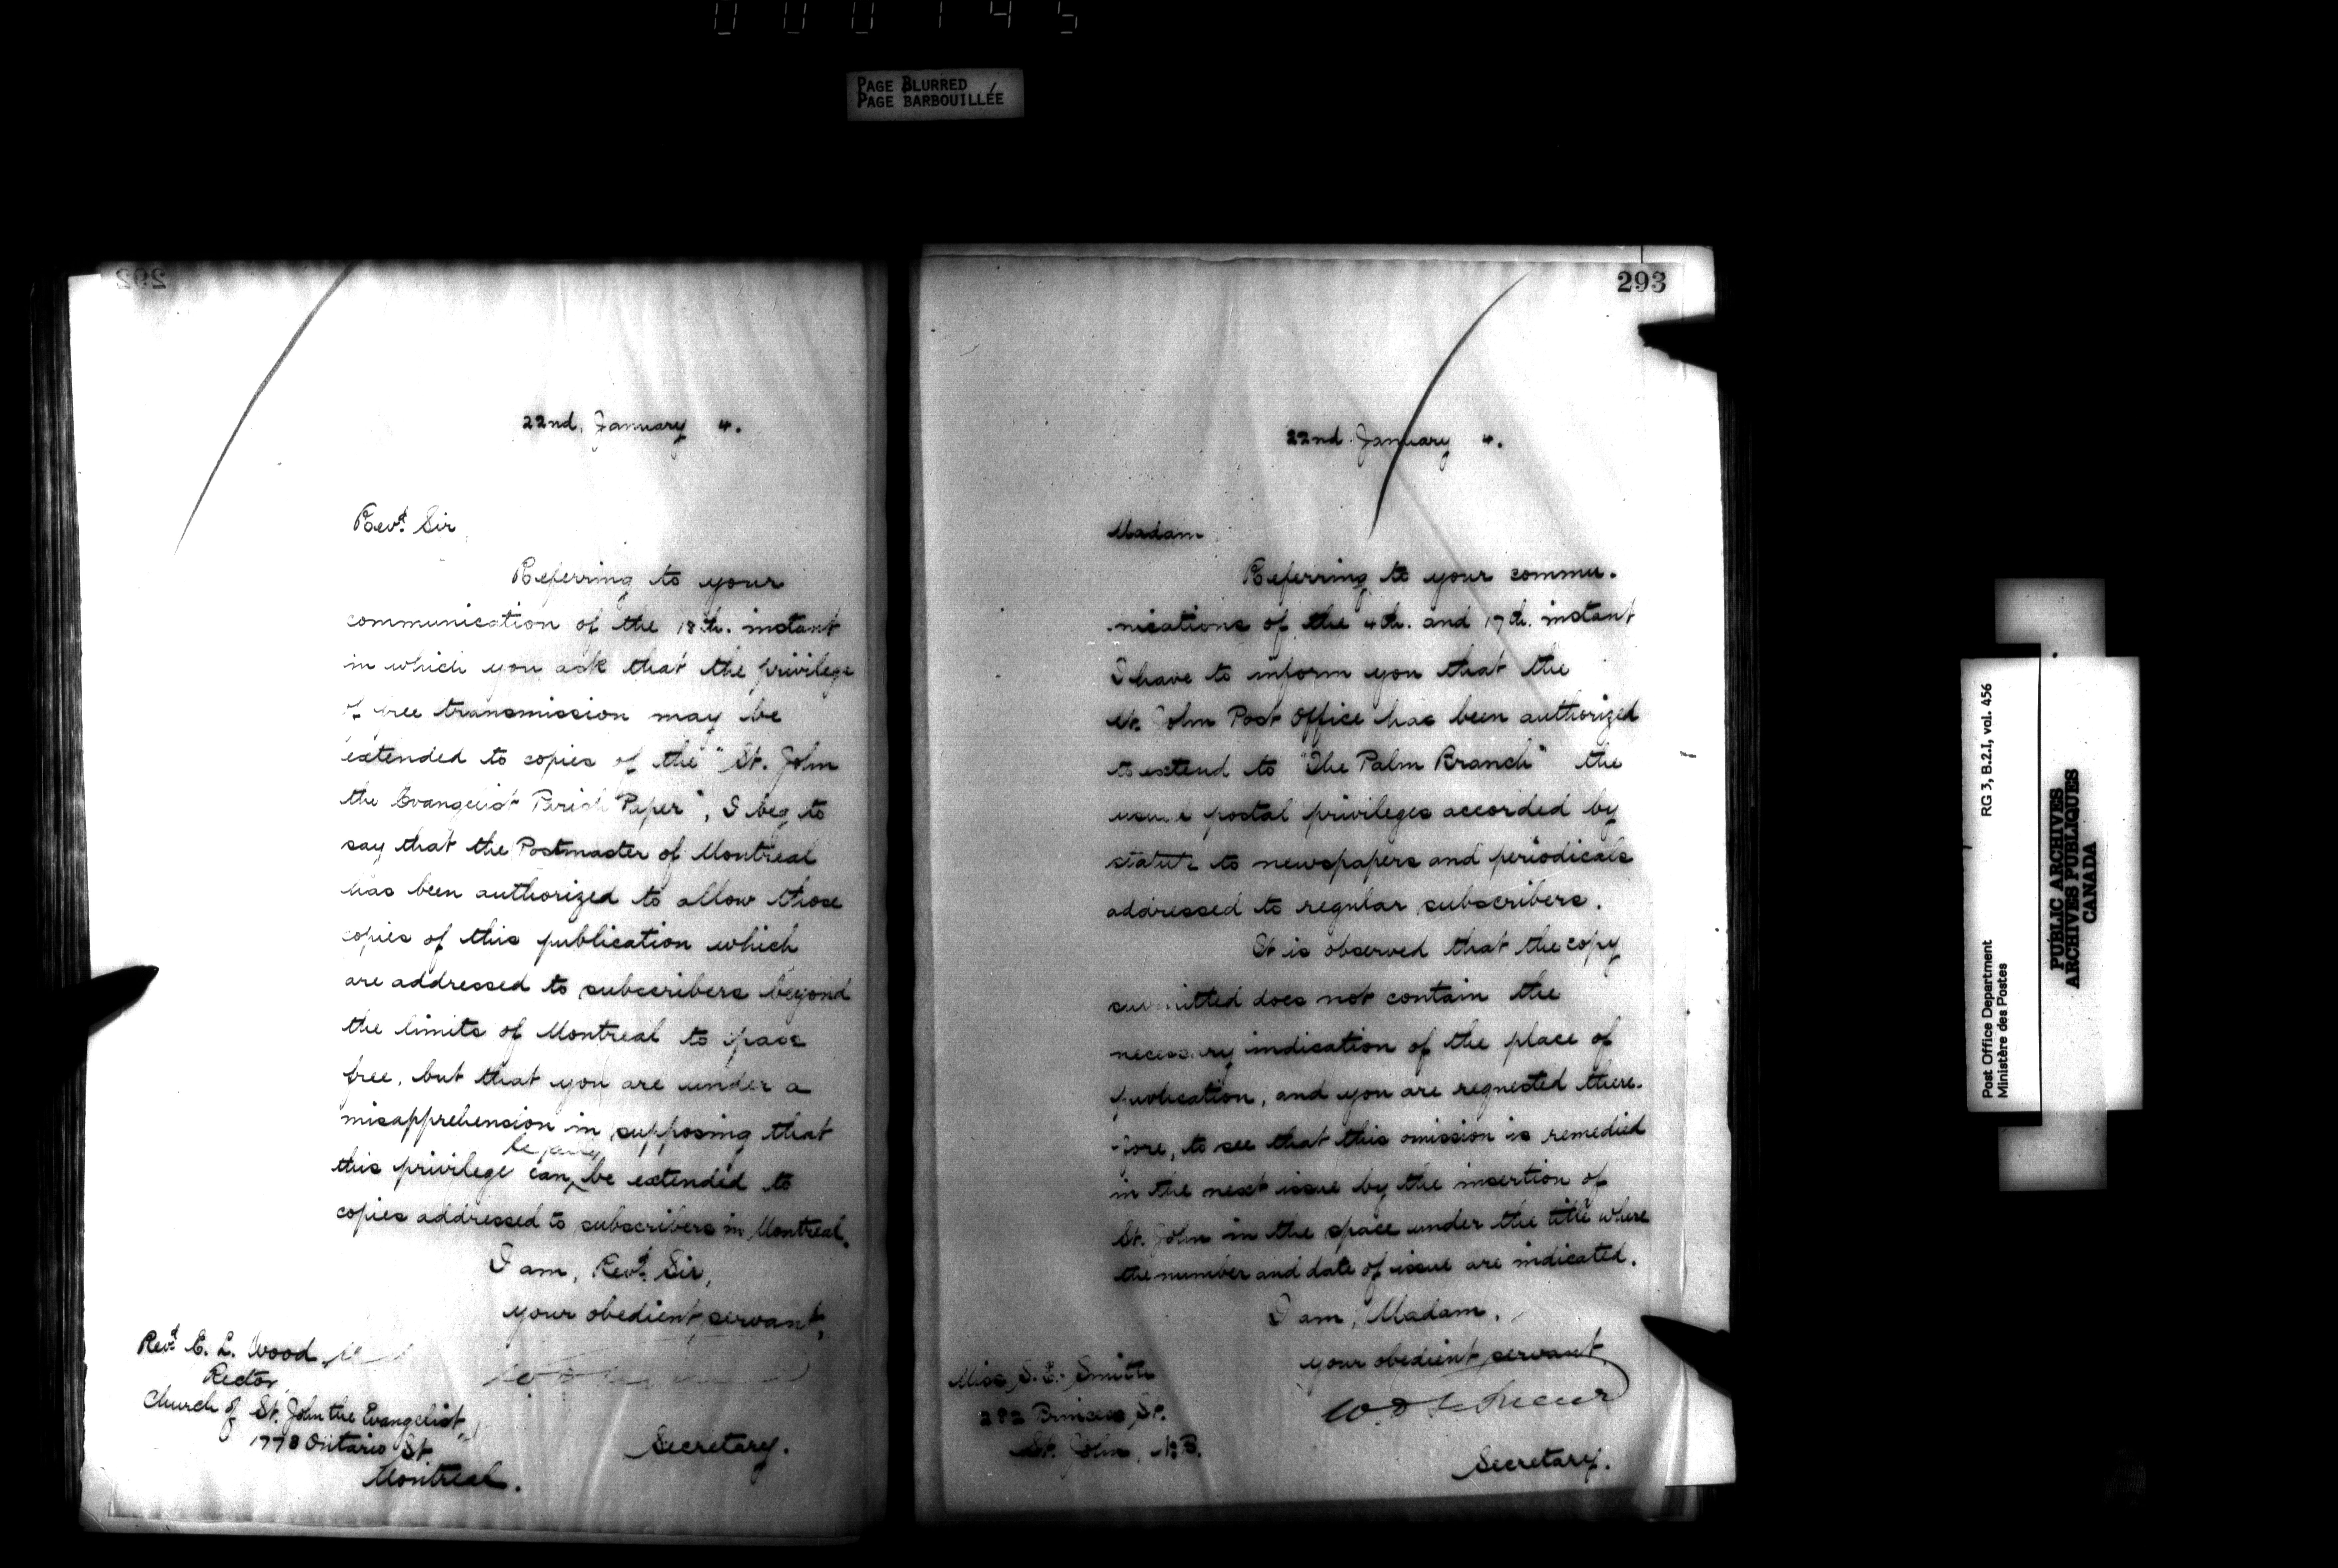 000145
PAGE BLURRED
PAGE BARBOUILLÉE
292
22nd, January 4.
Revd. Sir
Referring to your
communication of the 18th. instant
in which you ask that the privilege
of free transmission may be
extended to copies of the "St. John
the Evangelist Parish Paper", I beg to
say that the Postmaster of Montreal
has been authorized to allow those
copies of this publication which
are addressed to subscribers beyond
the limits of Montreal to pass
free, but that you are under a
misapprehension in supposing that
legally
this privilege can be extended to
copies addressed to subscribers in Montreal.
I am, Revd. Sir,
your obedient servant,
Revd. E. L. Wood
Rector,
Church of St. John the Evangelist,
1773 Ontario St.
Montreal.
Secretary.
293
22nd January 4.
Madam
Referring to your commu-
nications of the 4th. and 17th. instant
I have to inform you that the
St. John Post Office has been authorized
to extend to "The Palm Branch" the
usual postal privileges accorded by
statute to newspapers and periodicals
addressed to regular subscribers.
It is observed that the copy
submitted does not contain the
necessary indication of the place of
publication, and you are requested there-
fore, to see that this omission is remedied
in the next issue by the insertion of
St. John in the space under the title where
the number and date of issue are indicated.
I am, Madam,
your obedient servant,
Miss, S. E. Smith
282 Princess St.
St. John, N.B.
W. D. LeSueur
Secretary.
Post Office Department
Ministère des Postes
RG 3, B.2.I, vol. 456
PUBLIC ARCHIVES
ARCHIVES PUBLIQUES
CANADA